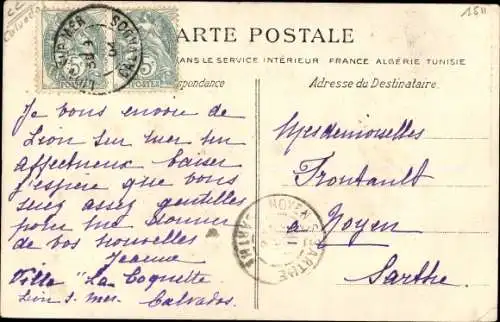 CC
Calvados
1511
CARTE POSTALE
DANS LE SERVICE INTÉRIEUR FRANCE ALGÉRIE TUNISIE
pondance
Adresse du Destinataire.
5 5
POSTES POSTES
LION-SUR-MER
CALVADOS
Je vous envoie de
Lion sur mer un
affectueux baiser
j'espère que vous
serez assez gentilles
pour me donner
de vos nouvelles
Jeanne
Villa "La Coquette
Lion s. mer. Calvados.
Mesdemoiselles
Frontault
à Noyen
Sarthe
NOYEN
SARTHE